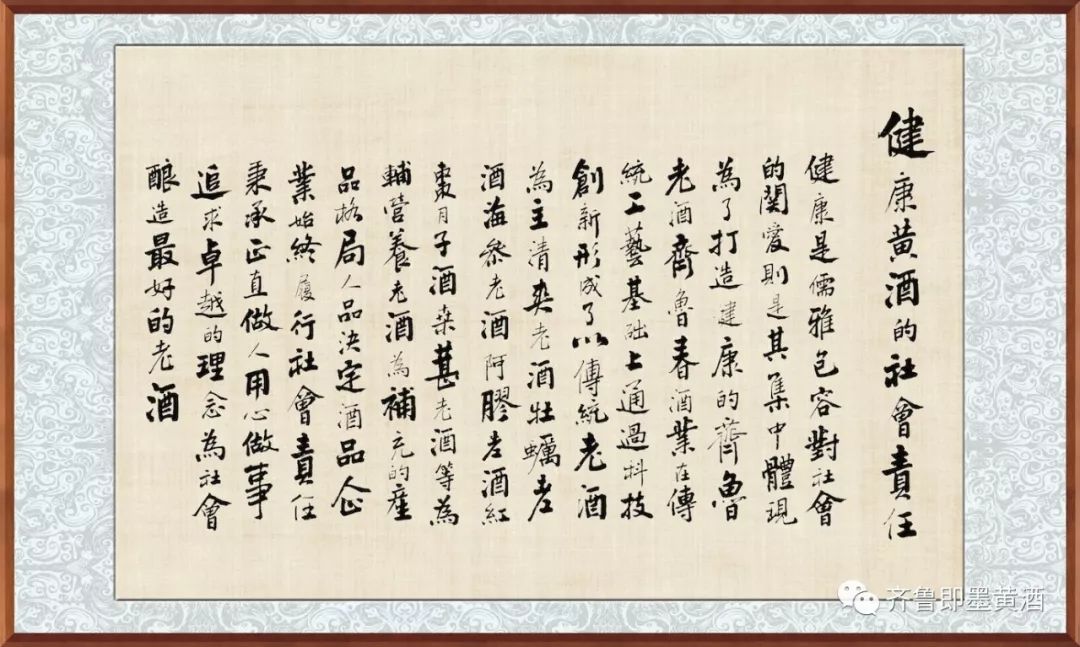 健康黄酒的社會責任
健康是儒雅包容對社會
的関愛則是其集中體現
為了打造建康的齊魯
老酒齊魯春酒業在傳
統工藝基础上通過科技
創新形成了以傳統老酒
為主清爽老酒牡蠣老
酒海參老酒阿膠老酒紅
棗月子酒桑葚老酒等為
輔營養老酒為補充的産
品格局人品決定酒品企
業始終履行社會責任
秉承正直做人用心做事
追求卓越的理念為社會
酿造最好的老酒
齐鲁即墨黄酒